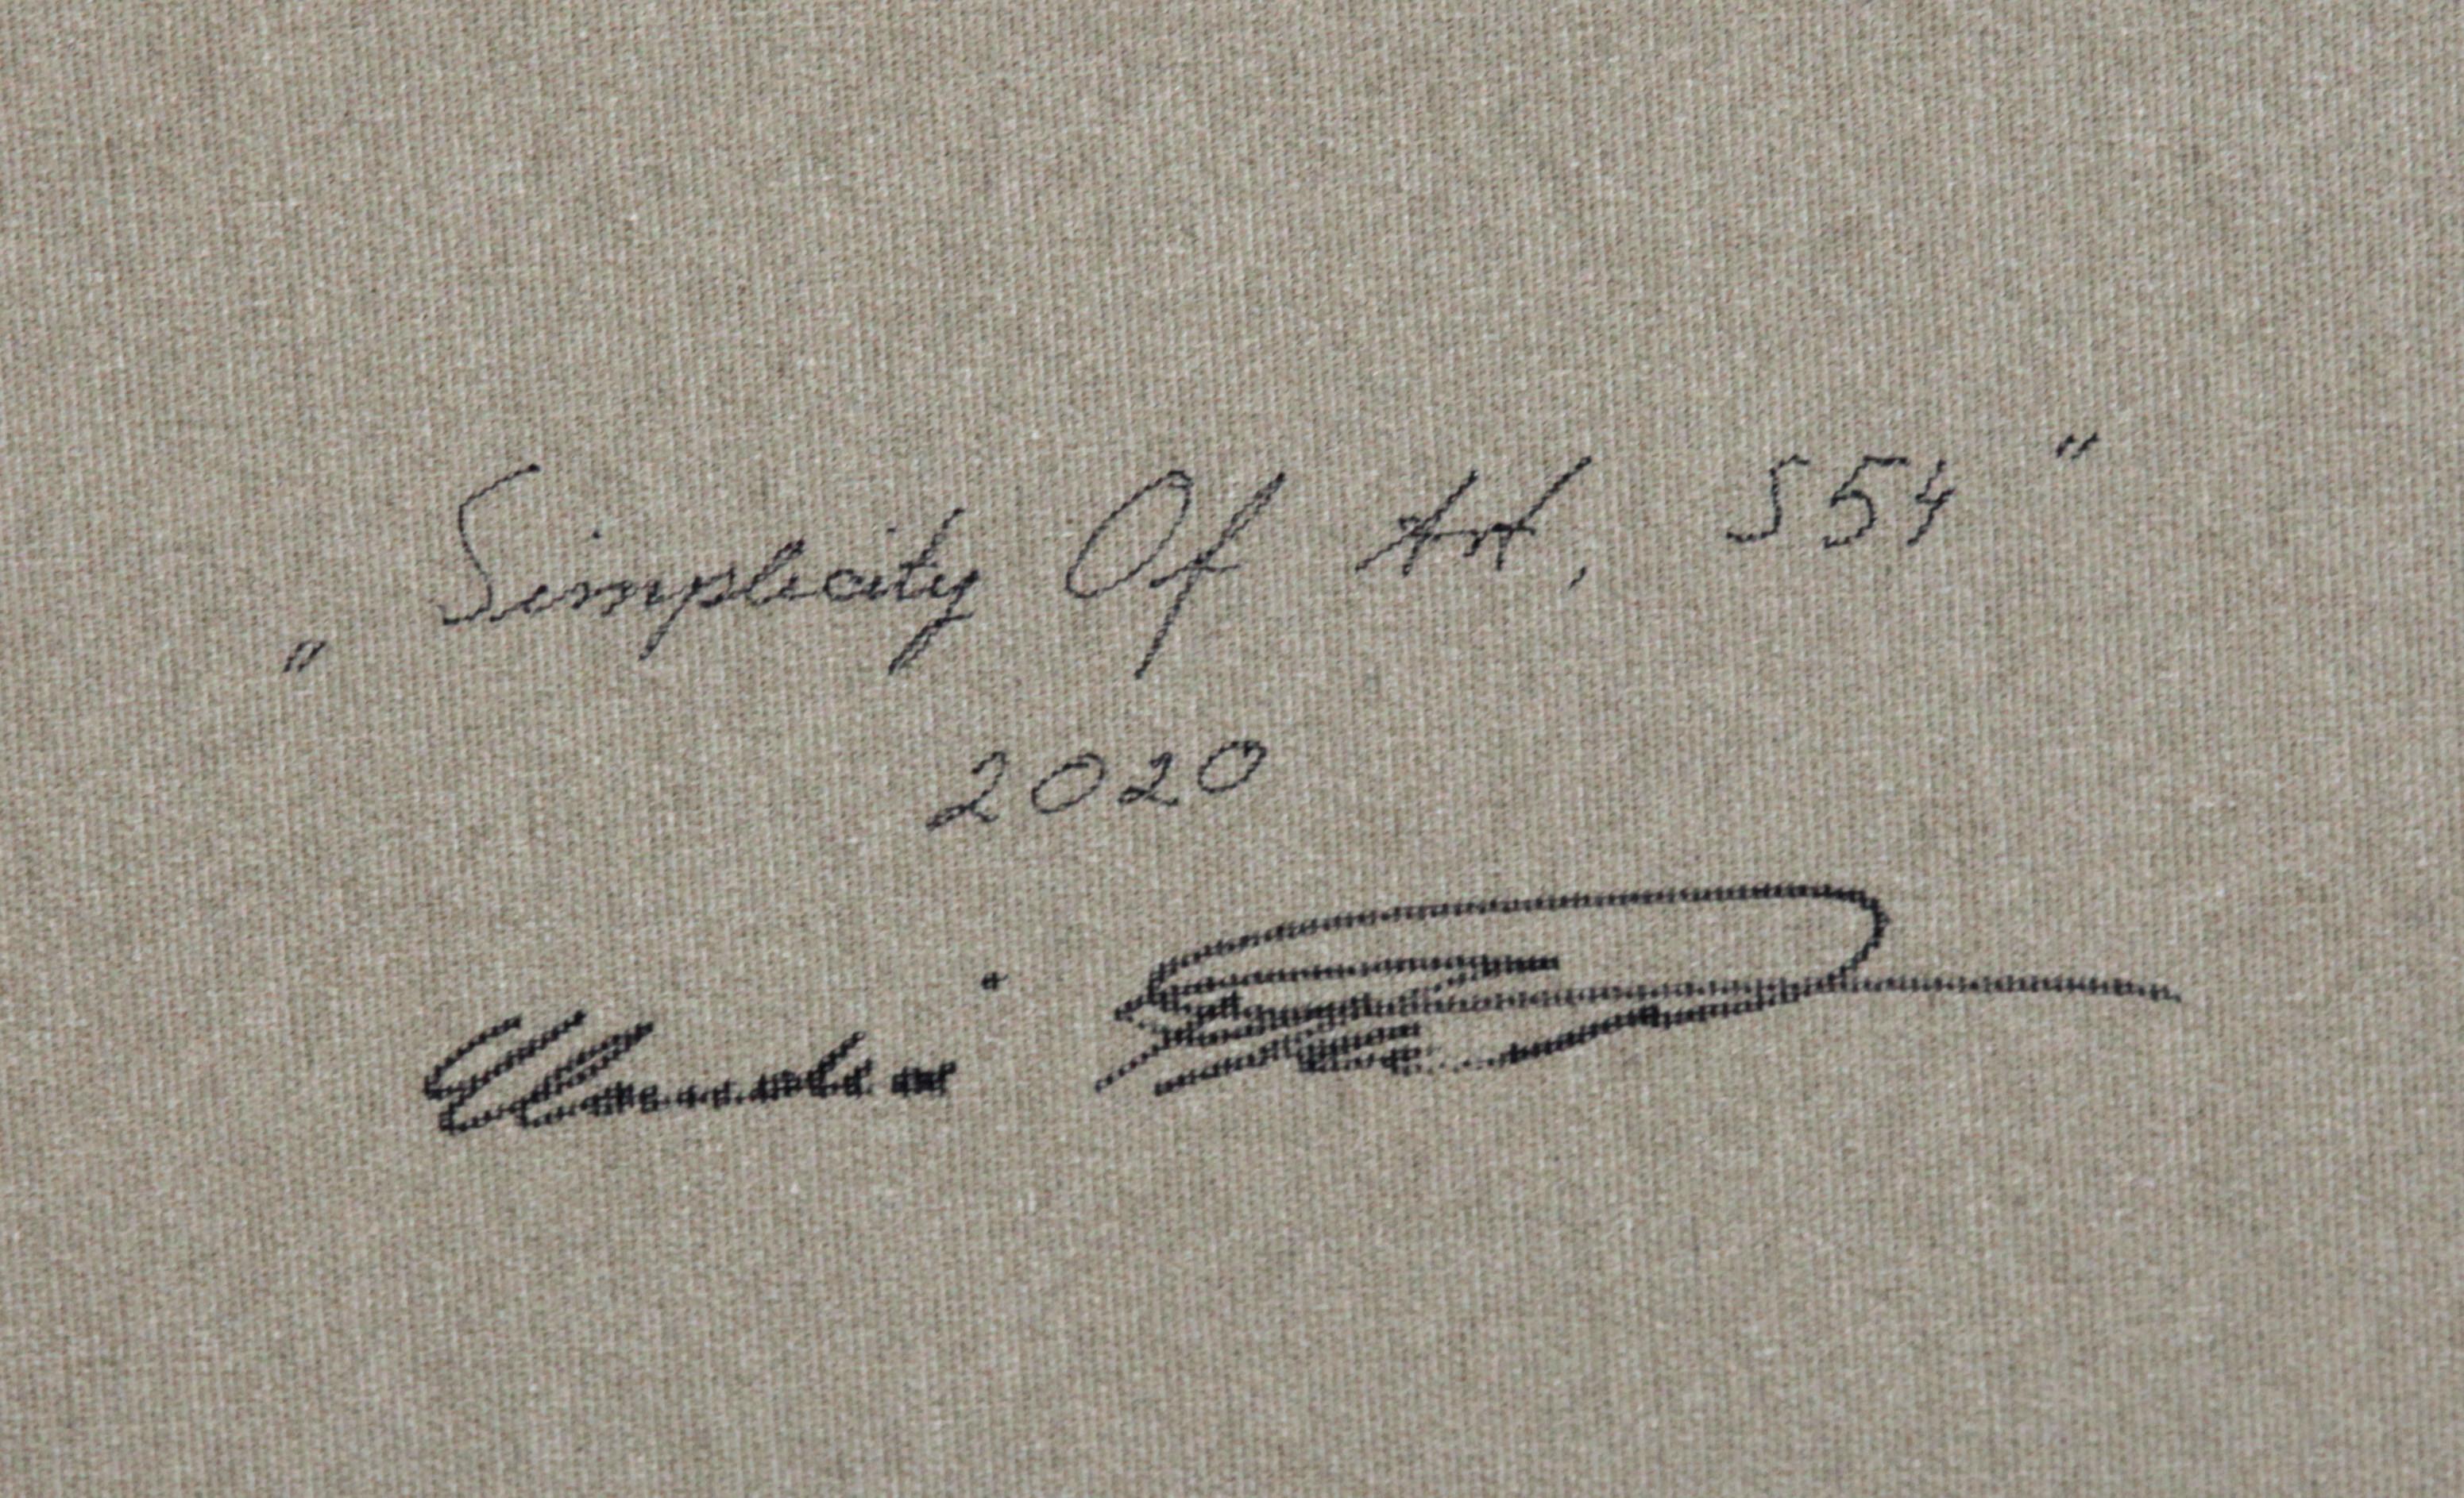 „ Simplicity Of Art, S54 "
2020